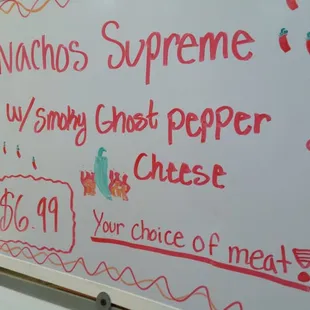 Nachos Supreme
w/ Smoky Ghost pepper
Cheese
$6.99
Your choice of meat!